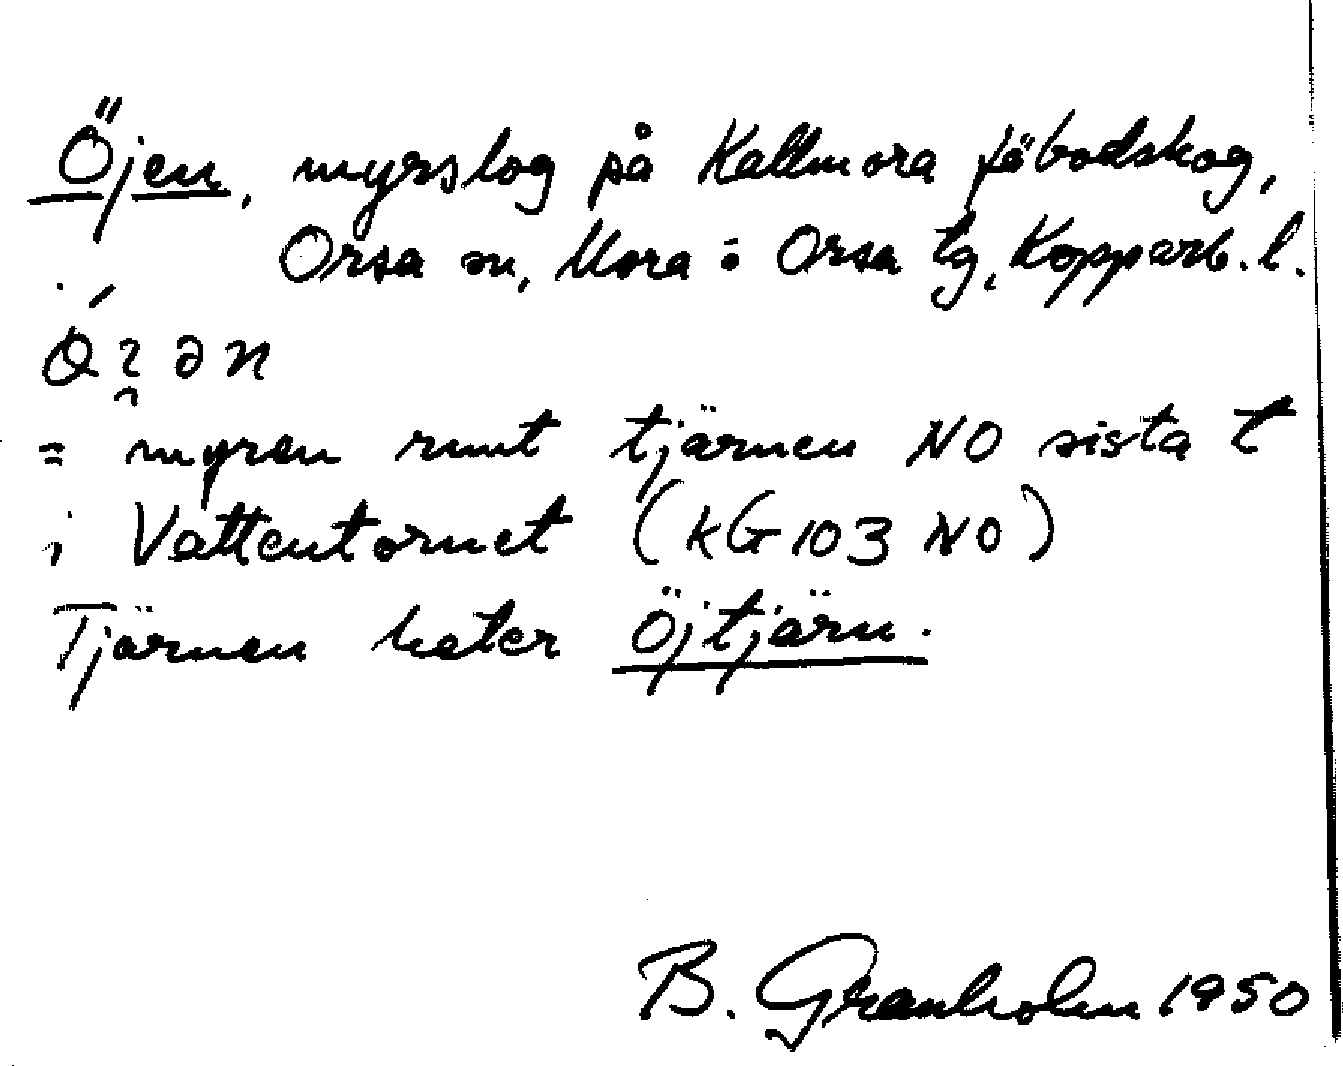 Öjen, myrslog på Kallmora fäbodskog,
Orsa sn, Mora o Orsa tg, Kopparb. l.
= myren runt tjärnen NO sista t
i Vattentornet (KG 103 NO)
Tjärnen heter Öjtjärn.
B. Granholm 1950